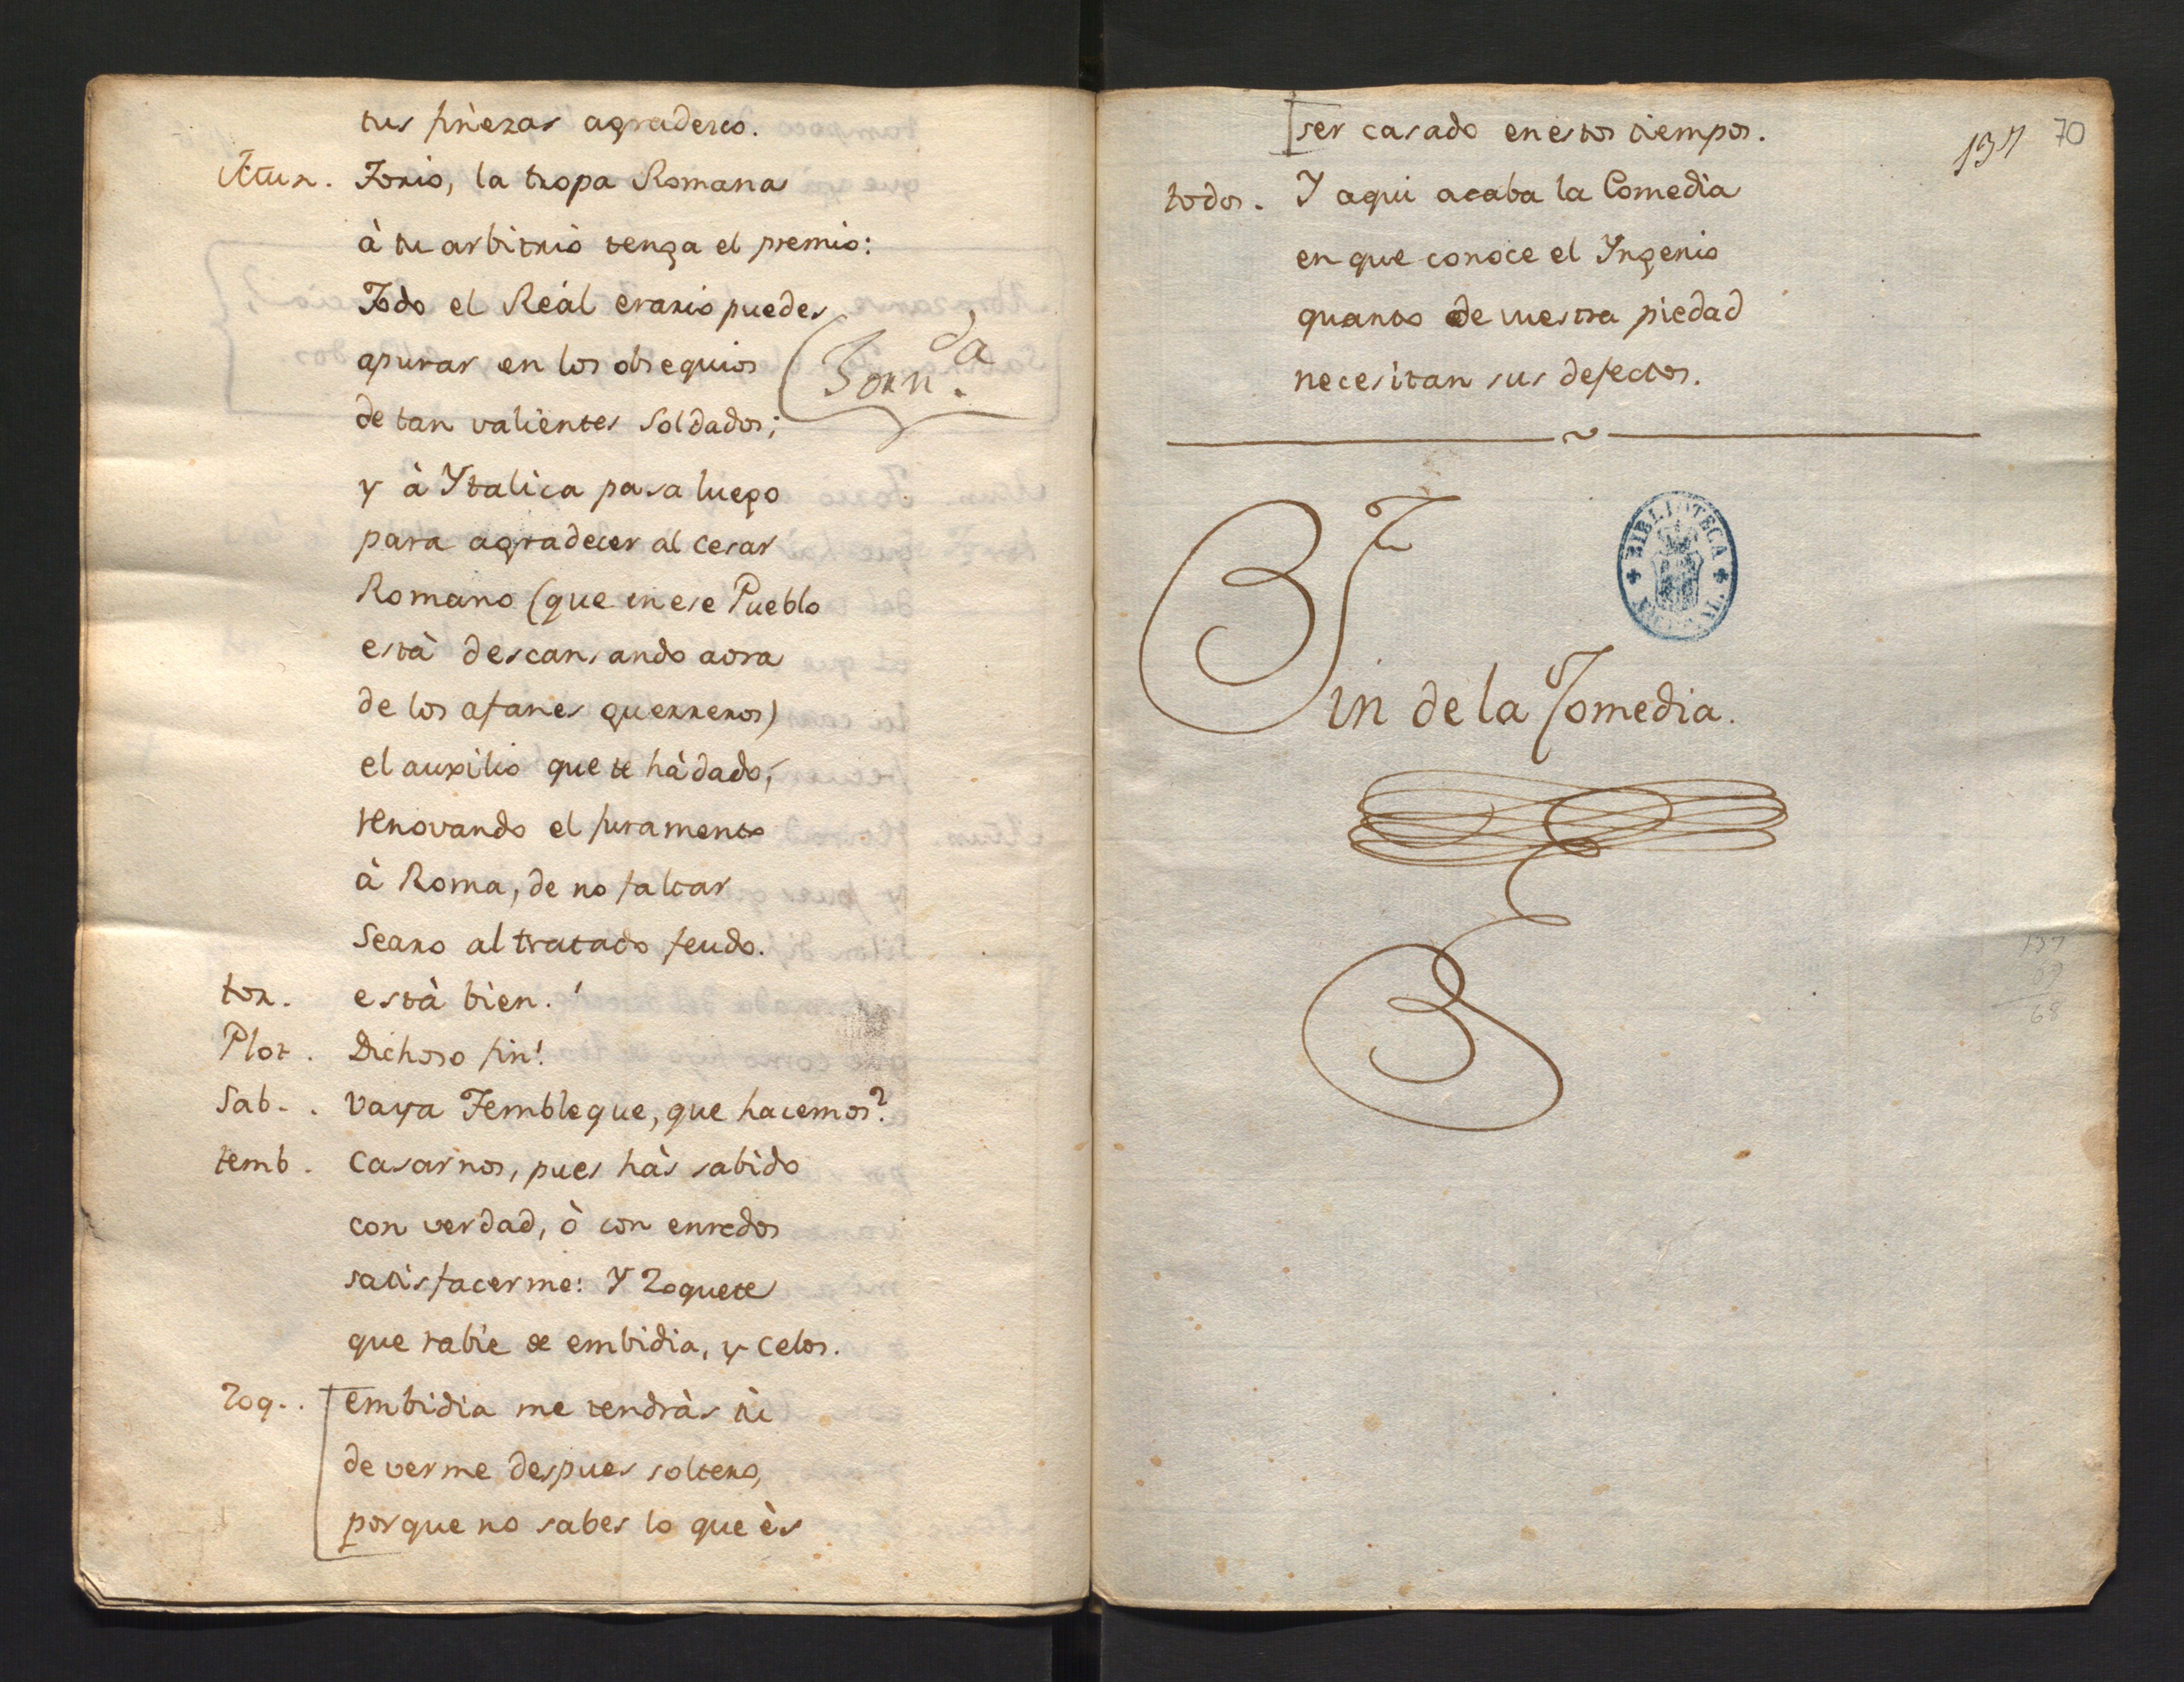 tus finezas agradezco.
Atur. Torio, la tropa Romana
à tu arbitrio tenga el premio:
Todo el Reál erario puedes
apurar en los obsequios
(Jorn.da
de tan valientes Soldados;
y à Ytalica pasa luego
para agradecer al Cesar
Romano (que en ese Pueblo
està descansando aora
de los afanes guerreros)
el auxilio que te hà dado,
renovando el juramento
à Roma, de no faltar
Seano al tratado feudo.
tor. està bien.
Plot. Dichoso fin!
Sab.. Vaya Tembleque, que hacemos?
temb. Casarnos, pues hàs sabido
con verdad, ò con enredos
satisfacerme: Y Zoquete
que rabie de embidia, y Celos.
Zoq.. embidia me tendràs tù
de verme despues soltero,
porque no sabes lo que ès
ser casado en estos tiempos.
137 70
todos. Y aqui acaba la Comedia
en que conoce el Yngenio
quanto de vuestra piedad
necesitan sus defectos.
BIBLIOTECA
Fin de la Comedia.
137
69
68